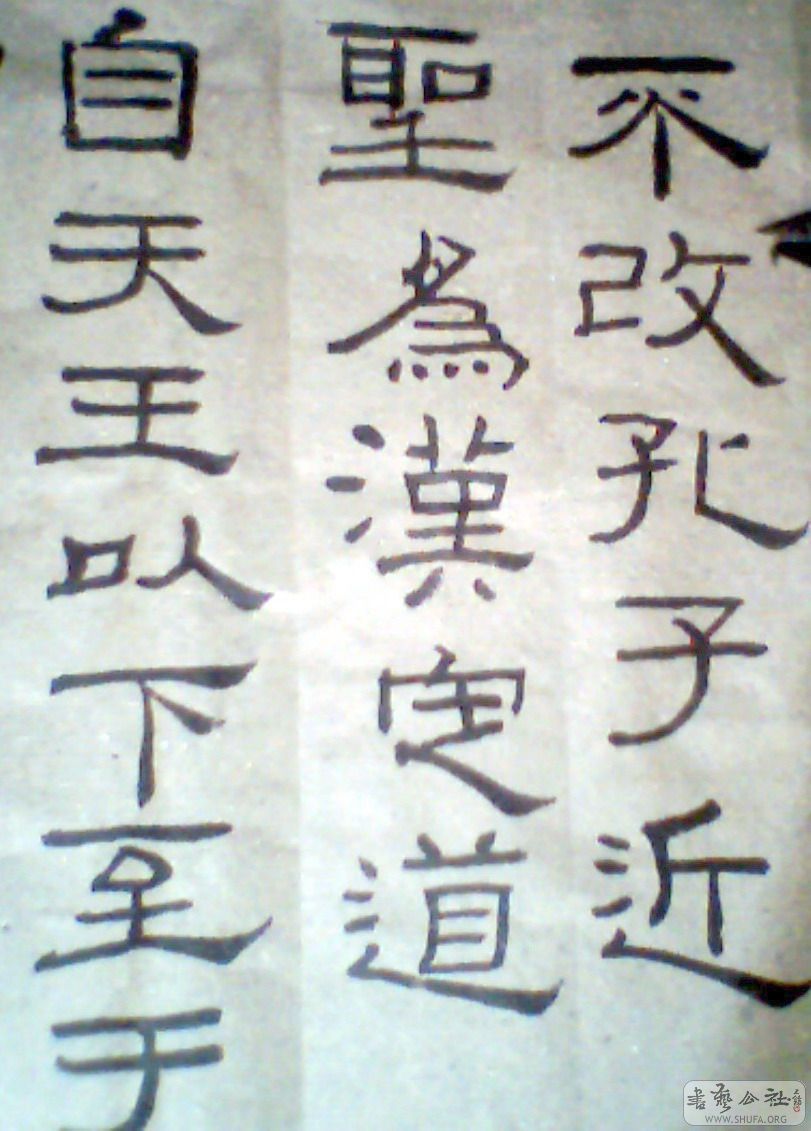 不改孔子近
聖為漢定道
自天王以下至于
書藝公社
WWW.SHUFA.ORG